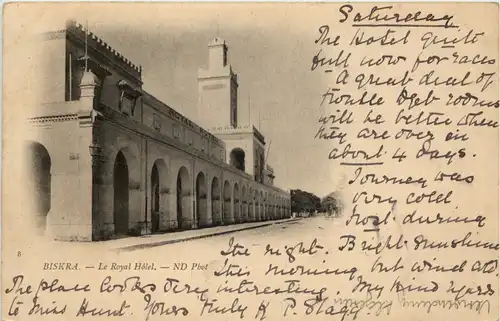 Saturday
The Hotel quite
full now for races
A great deal of
trouble abt rooms
will be better when
they are over in
about 4 days.
Journey was
very cold
frost during
the night. Bright sunshine
this morning but wind cold
The place looks very interesting. My kind regards
to Miss Hunt. Yours truly H P. Stagg
ROYAL HOTEL
8
BISKRA. — Le Royal Hôtel. — ND Phot